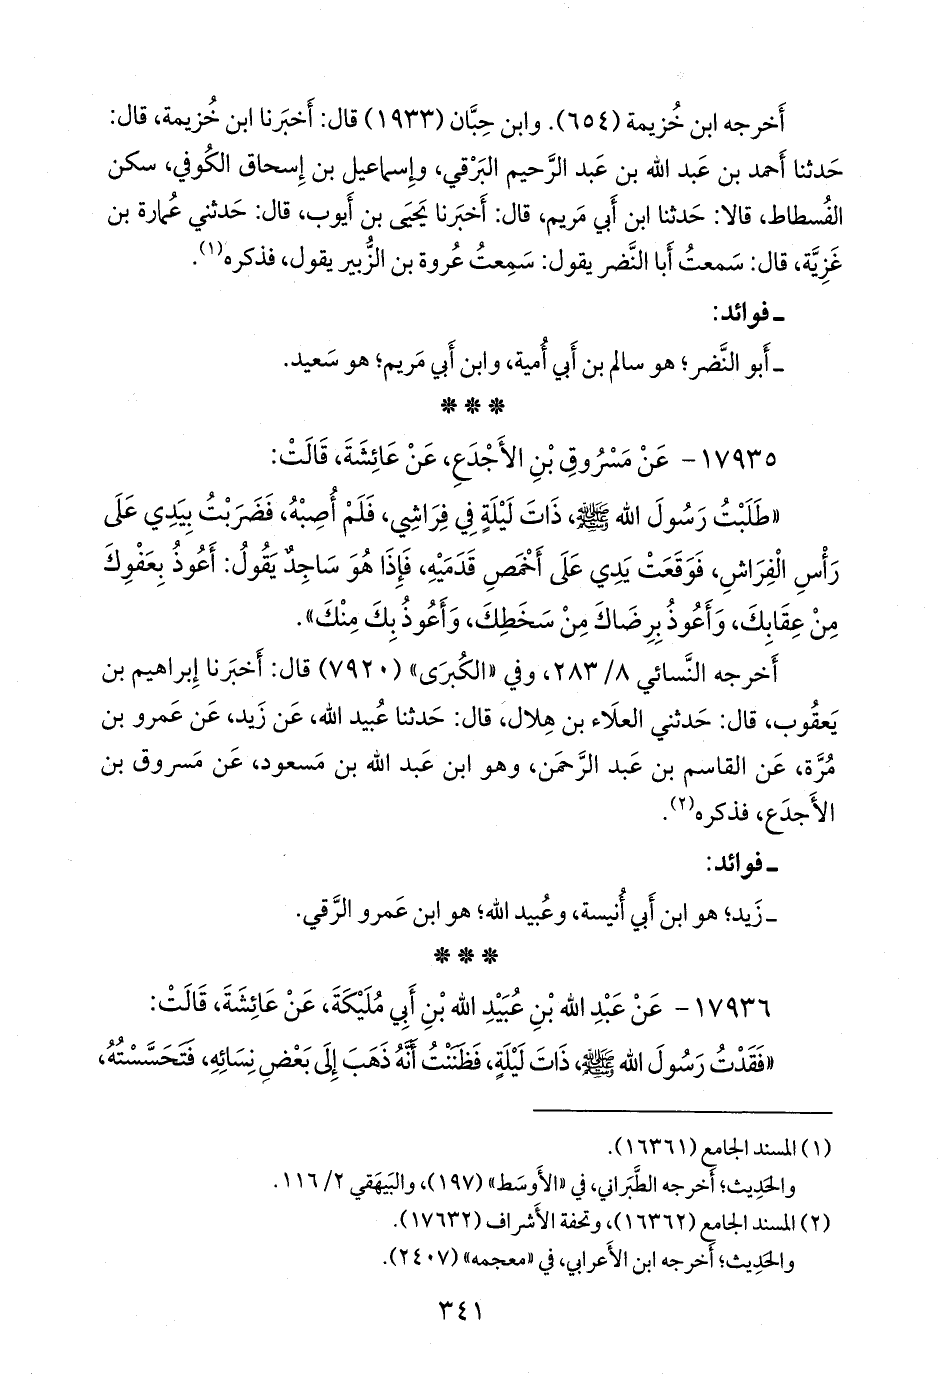 أَخرجه ابن خُزيمة (٦٥٤). وابن حِبَّان (١٩٣٣) قال: أَخبَرنا ابن خُزيمة، قال:
حَدثنا أَحمد بن عَبد الله بن عَبد الرَّحيم البَرْقي، وإِسماعيل بن إِسحاق الكُوفي، سكن
الفُسطاط، قالا: حَدثنا ابن أَبي مَريم، قال: أَخبَرنا يَحيَى بن أَيوب، قال: حَدثني عُمارة بن
غَزِيَّة، قال: سَمعتُ أَبا النَّضر يقول: سَمِعتُ عُروة بن الزُّبير يقول، فذكره(١).
ـ فوائد:
ـ أَبو النَّضر؛ هو سالم بن أَبي أُمية، وابن أَبي مَريم؛ هو سَعيد.
* * *
١٧٩٣٥- عَنْ مَسْرُوقِ بْنِ الأَجْدَعِ، عَنْ عَائِشَةَ، قَالَتْ:
«طَلَبْتُ رَسُولَ الله ﷺ، ذَاتَ لَيْلَةٍ فِي فِرَاشِي، فَلَمْ أُصِبْهُ، فَضَرَبْتُ بِيَدِي عَلَى
رَأْسِ الْفِرَاشِ، فَوَقَعَتْ يَدِي عَلَى أَخْمَصِ قَدَمَيْهِ، فَإِذَا هُوَ سَاجِدٌ يَقُولُ: أَعُوذُ بِعَفْوِكَ
مِنْ عِقَابِكَ، وَأَعُوذُ بِرِضَاكَ مِنْ سَخَطِكَ، وَأَعُوذُ بِكَ مِنْكَ».
أَخرجه النَّسائي ٨/ ٢٨٣، وفي «الكُبرَى» (٧٩٢٠) قال: أَخبَرنا إِبراهيم بن
يَعقُوب، قال: حَدثني العلَاء بن هِلال، قال: حَدثنا عُبيد الله، عَن زَيد، عَن عَمرو بن
مُرَّة، عَن القاسم بن عَبد الرَّحمَن، وهو ابن عَبد الله بن مَسعود، عَن مَسروق بن
الأَجدَع، فذكره(٢).
ـ فوائد:
ـ زَيد؛ هو ابن أَبي أُنيسة، وعُبيد الله؛ هو ابن عَمرو الرَّقي.
* * *
١٧٩٣٦- عَنْ عَبْدِ الله بْنِ عُبَيْدِ الله بْنِ أَبِي مُلَيْكَةَ، عَنْ عَائِشَةَ، قَالَتْ:
«فَقَدْتُ رَسُولَ الله ﷺ، ذَاتَ لَيْلَةٍ، فَظَنَنْتُ أَنَّهُ ذَهَبَ إِلَى بَعْضِ نِسَائِهِ، فَتَحَسَّسْتُهُ،
(١) المسند الجامع (١٦٣٦١).
والحَدِيث؛ أَخرجه الطَّبَراني، في «الأَوسَط» (١٩٧)، والبَيهَقي ٢/ ١١٦.
(٢) المسند الجامع (١٦٣٦٢)، وتحفة الأَشراف (١٧٦٣٢).
والحَدِيث؛ أَخرجه ابن الأَعرابي، في «معجمه» (٢٤٠٧).
٣٤١